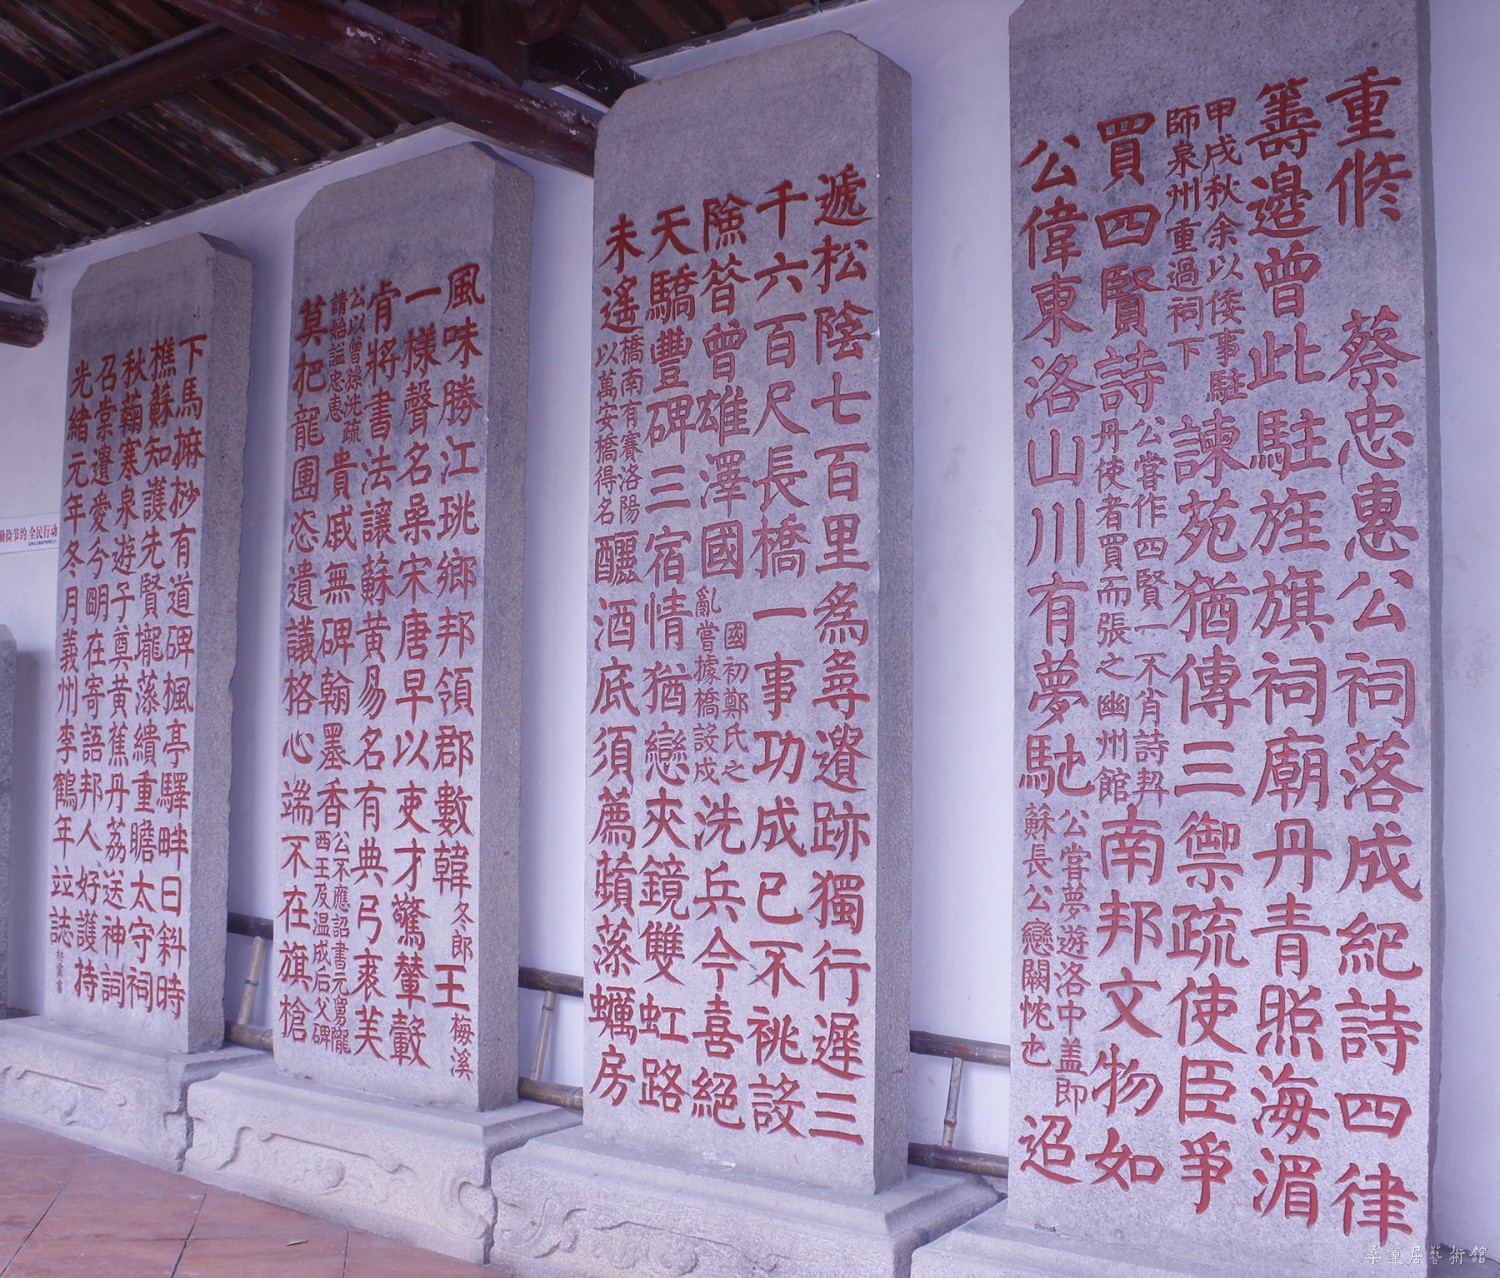 重修 蔡忠惠公祠落成紀詩四律
籌邊曾此駐旌旗祠廟丹青照海湄
甲戌秋余以倭事駐
師泉州重過祠下
諫苑猶傳三禦疏使臣爭
買四賢詩
公嘗作四賢一不肖詩契
丹使者買而張之幽州館
南邦文物如
公偉東洛山川有夢馳
公嘗夢遊洛中盖即
蘇長公戀闕忱也
迢
遞松陰七百里為尋遺跡獨行遲三
千六百尺長橋一事功成已不祧設
險咎曾雄澤國
國初鄭氏之
亂嘗據橋設戍
洗兵今喜絕
天驕豐碑三宿情猶戀夾鏡雙虹路
未遙
橋南有賽洛陽
以萬安橋得名
釃酒底須薦蘋藻蠣房
風味勝江珧鄉邦領郡數韓
冬郎
王
梅溪
一樣聲名桑宋唐早以吏才驚輦轂
肯將書法讓蘇黃易名有典弓裘美
公以曾孫洸疏
請始謚忠惠
貴戚無碑翰墨香
公不應詔書元舅隴
西王及温成后父碑
莫把龍團恣遺議格心端不在旗槍
下馬摩挱有道碑楓亭驛畔日斜時
樵蘇知護先賢壠藻繢重瞻太守祠
秋蘜寒泉遊子奠黃蕉丹荔送神詞
召棠遺愛今朙在寄語邦人好護持
光緒元年冬月義州李鶴年竝誌
勤俭节约 全民行动